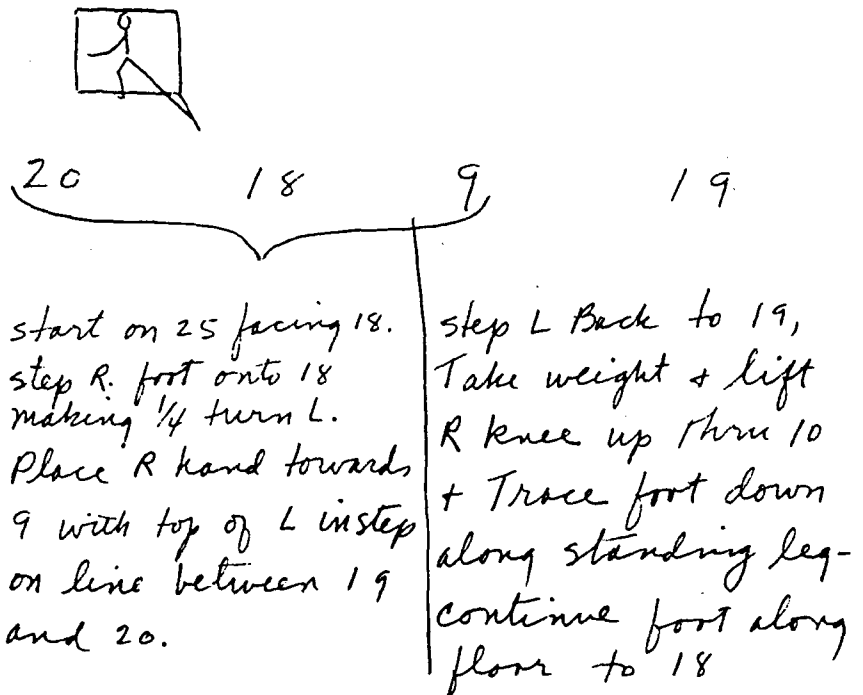 20 18 9 19
start on 25 facing 18.
step R. foot onto 18
making 1/4 turn L.
Place R hand towards
9 with top of L instep
on line between 19
and 20.
step L Back to 19,
Take weight + lift
R knee up thru 10
+ Trace foot down
along standing leg-
continue foot along
floor to 18